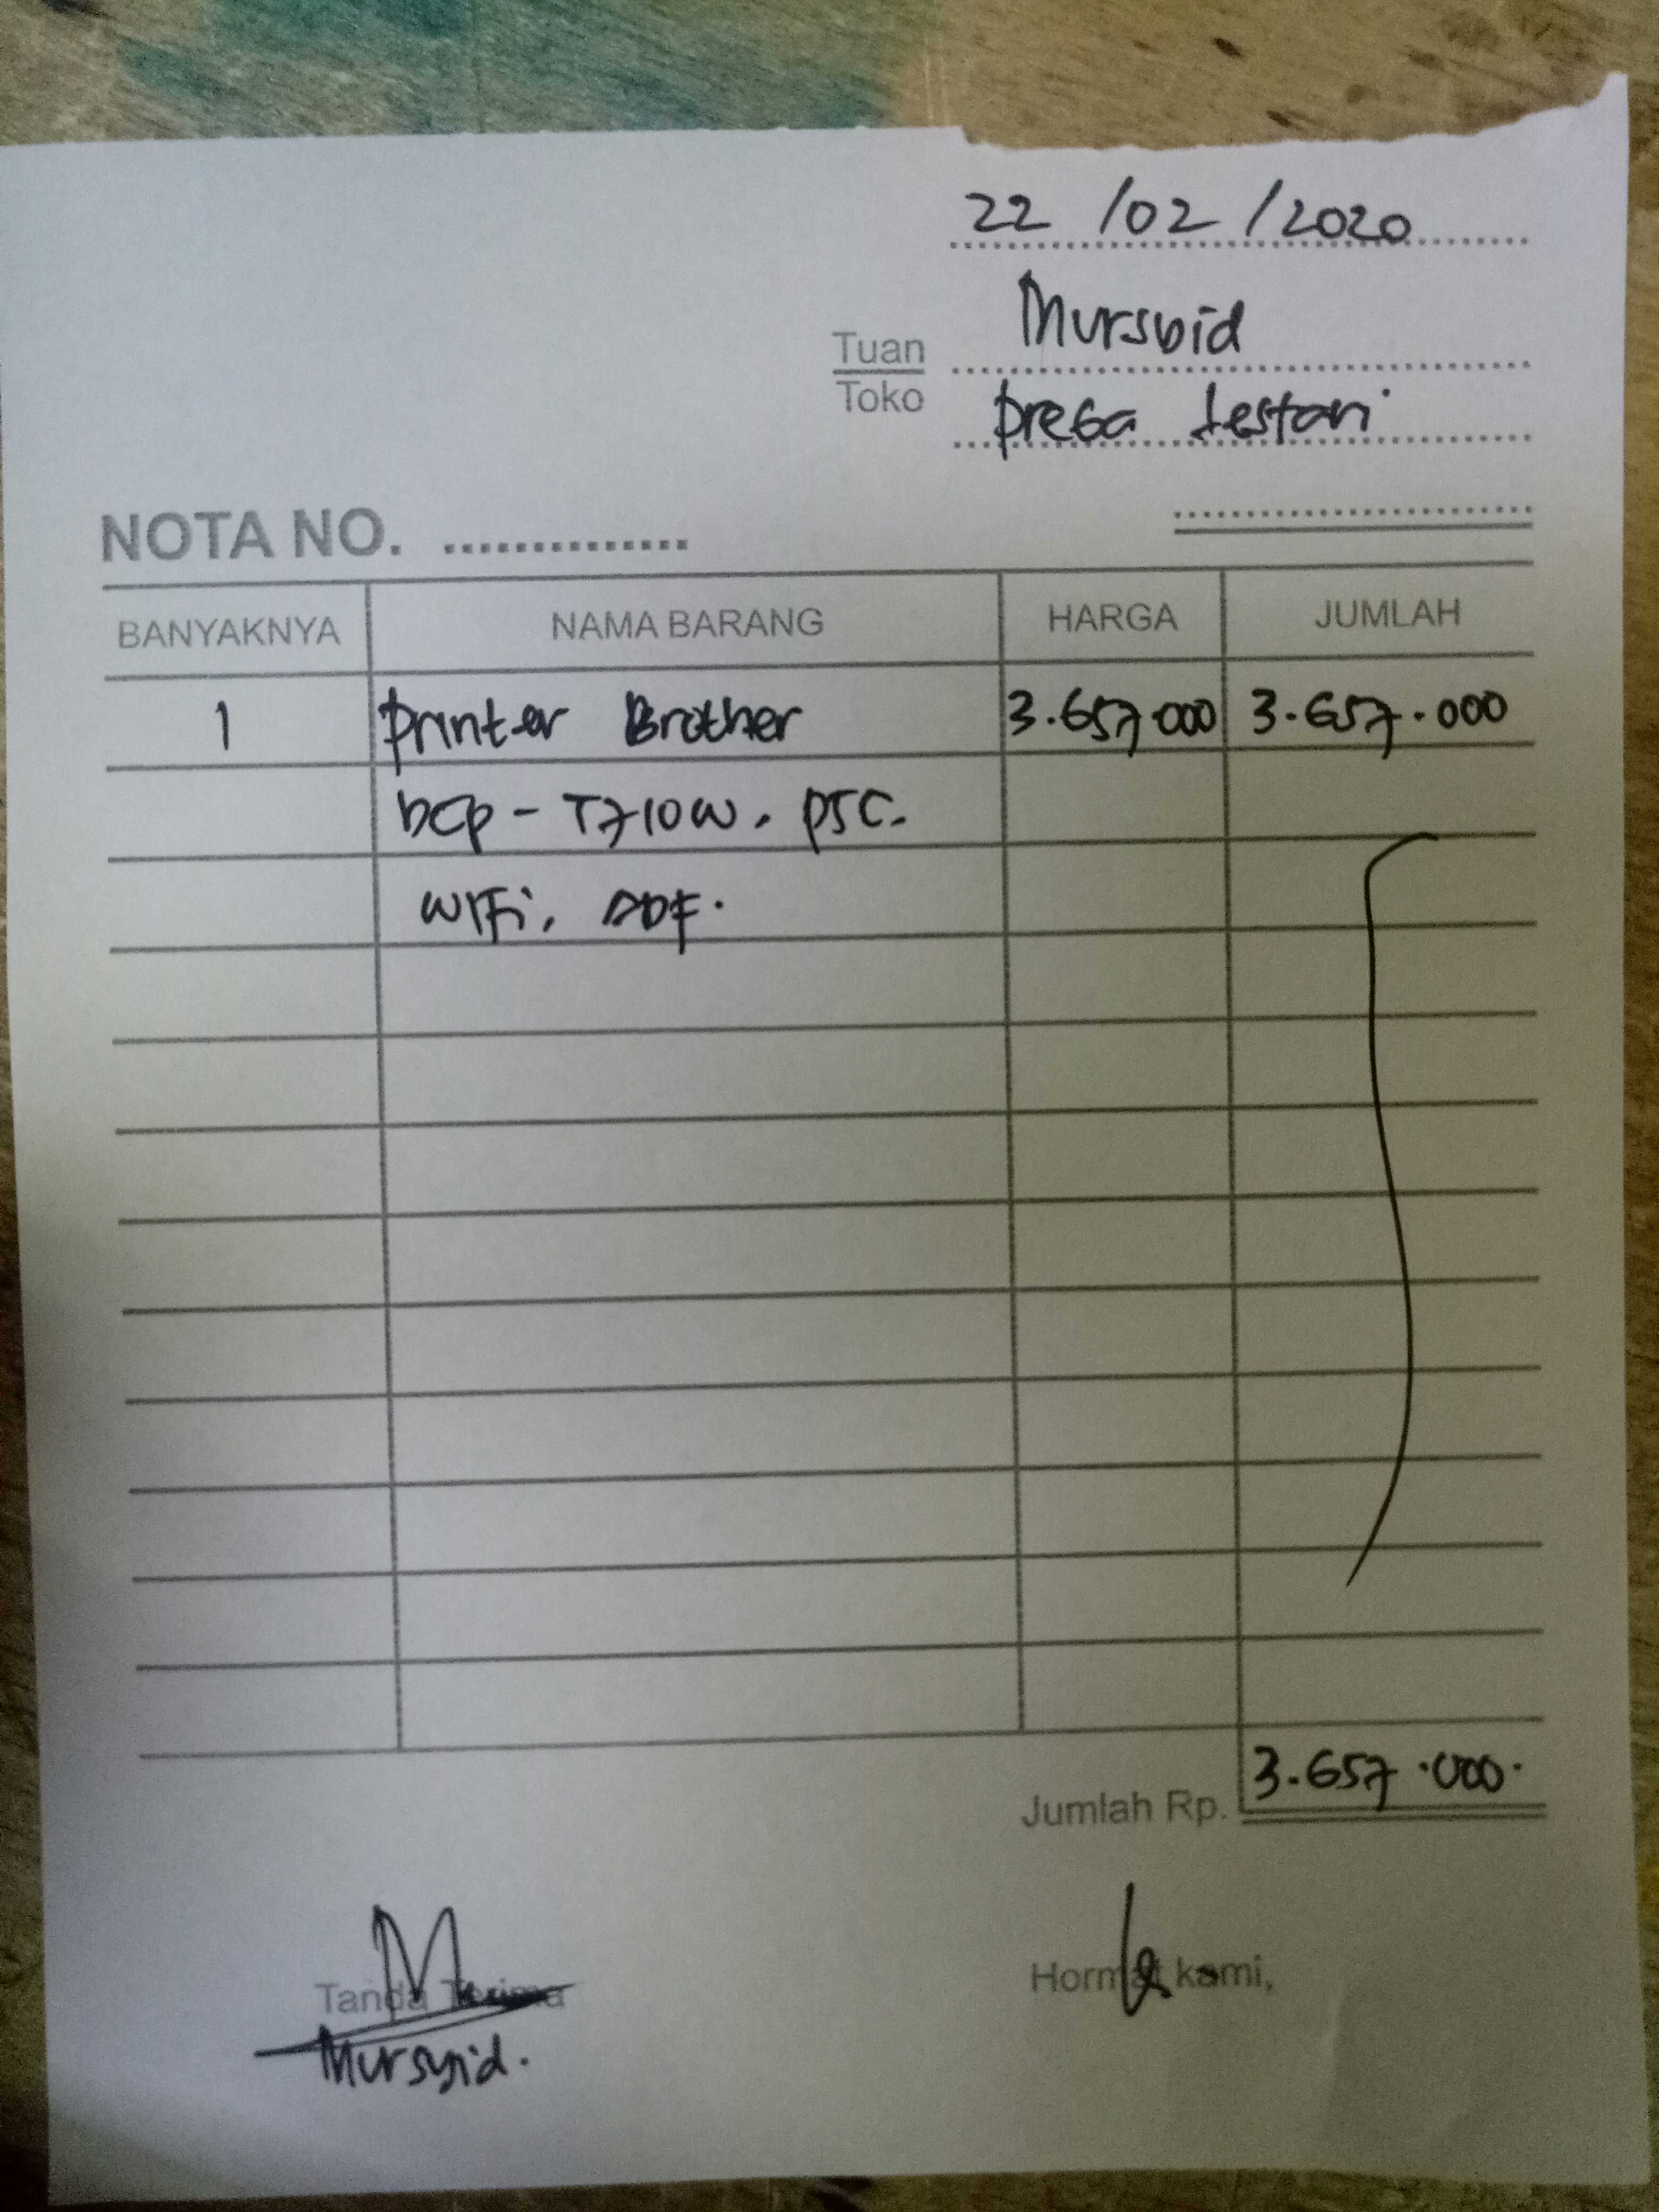 22 /02 /2020
Tuan Mursyid
Toko Prega Lestari
NOTA NO. ..............
BANYAKNYA NAMA BARANG HARGA JUMLAH
1 Printer Brother 3.657.000 3.657.000
DCP - T710W. PSC.
WiFi, ADF.
Jumlah Rp. 3.657.000.
Tanda Terima Hormat kami,
Mursyid.